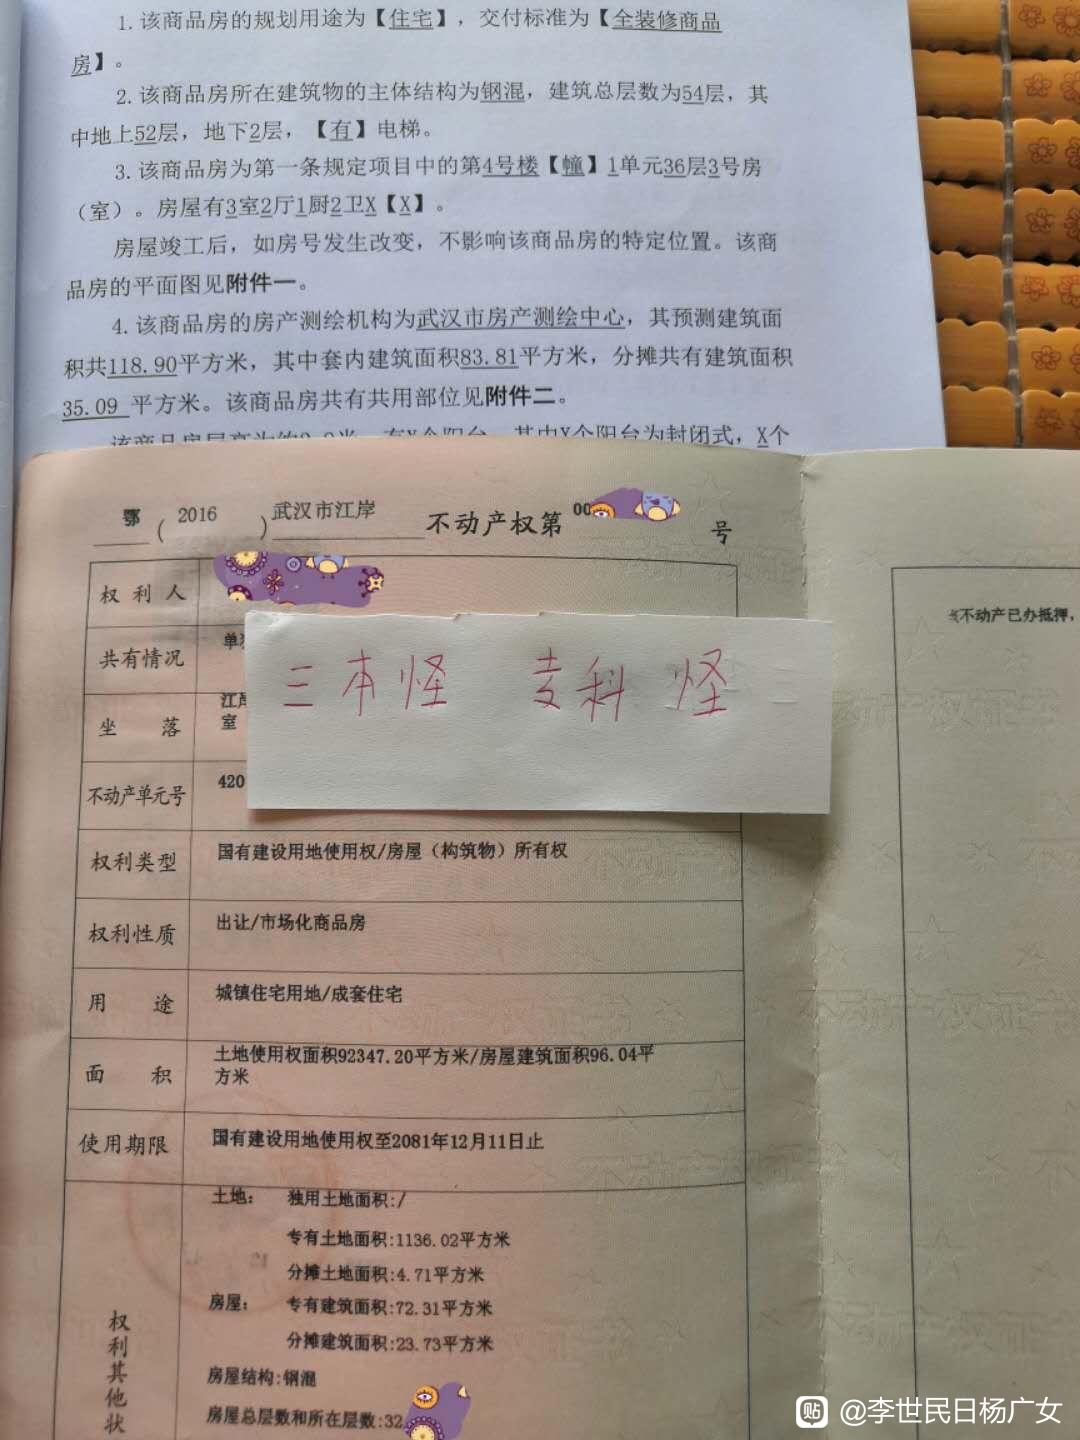 1.该商品房的规划用途为【住宅】，交付标准为【全装修商品
房】。
2.该商品房所在建筑物的主体结构为钢混，建筑总层数为54层，其
中地上52层，地下2层，【有】电梯。
3.该商品房为第一条规定项目中的第4号楼【幢】1单元36层3号房
（室）。房屋有3室2厅1厨2卫X【X】。
房屋竣工后，如房号发生改变，不影响该商品房的特定位置。该商
品房的平面图见附件一。
4.该商品房的房产测绘机构为武汉市房产测绘中心，其预测建筑面
积共118.90平方米，其中套内建筑面积83.81平方米，分摊共有建筑面积
35.09 平方米。该商品房共有共用部位见附件二。
鄂（2016）武汉市江岸不动产权第00 号
权利人
共有情况 单
三本怪 专科怪
坐落 江岸
室
不动产单元号 420
权利类型 国有建设用地使用权/房屋（构筑物）所有权
权利性质 出让/市场化商品房
用途 城镇住宅用地/成套住宅
面积 土地使用权面积92347.20平方米/房屋建筑面积96.04平
方米
使用期限 国有建设用地使用权至2081年12月11日止
土地： 独用土地面积:/
专有土地面积:1136.02平方米
分摊土地面积:4.71平方米
房屋： 专有建筑面积:72.31平方米
分摊建筑面积:23.73平方米
房屋结构:钢混
房屋总层数和所在层数:32
权利其他状
不动产已办抵押，
贴 @李世民日杨广女